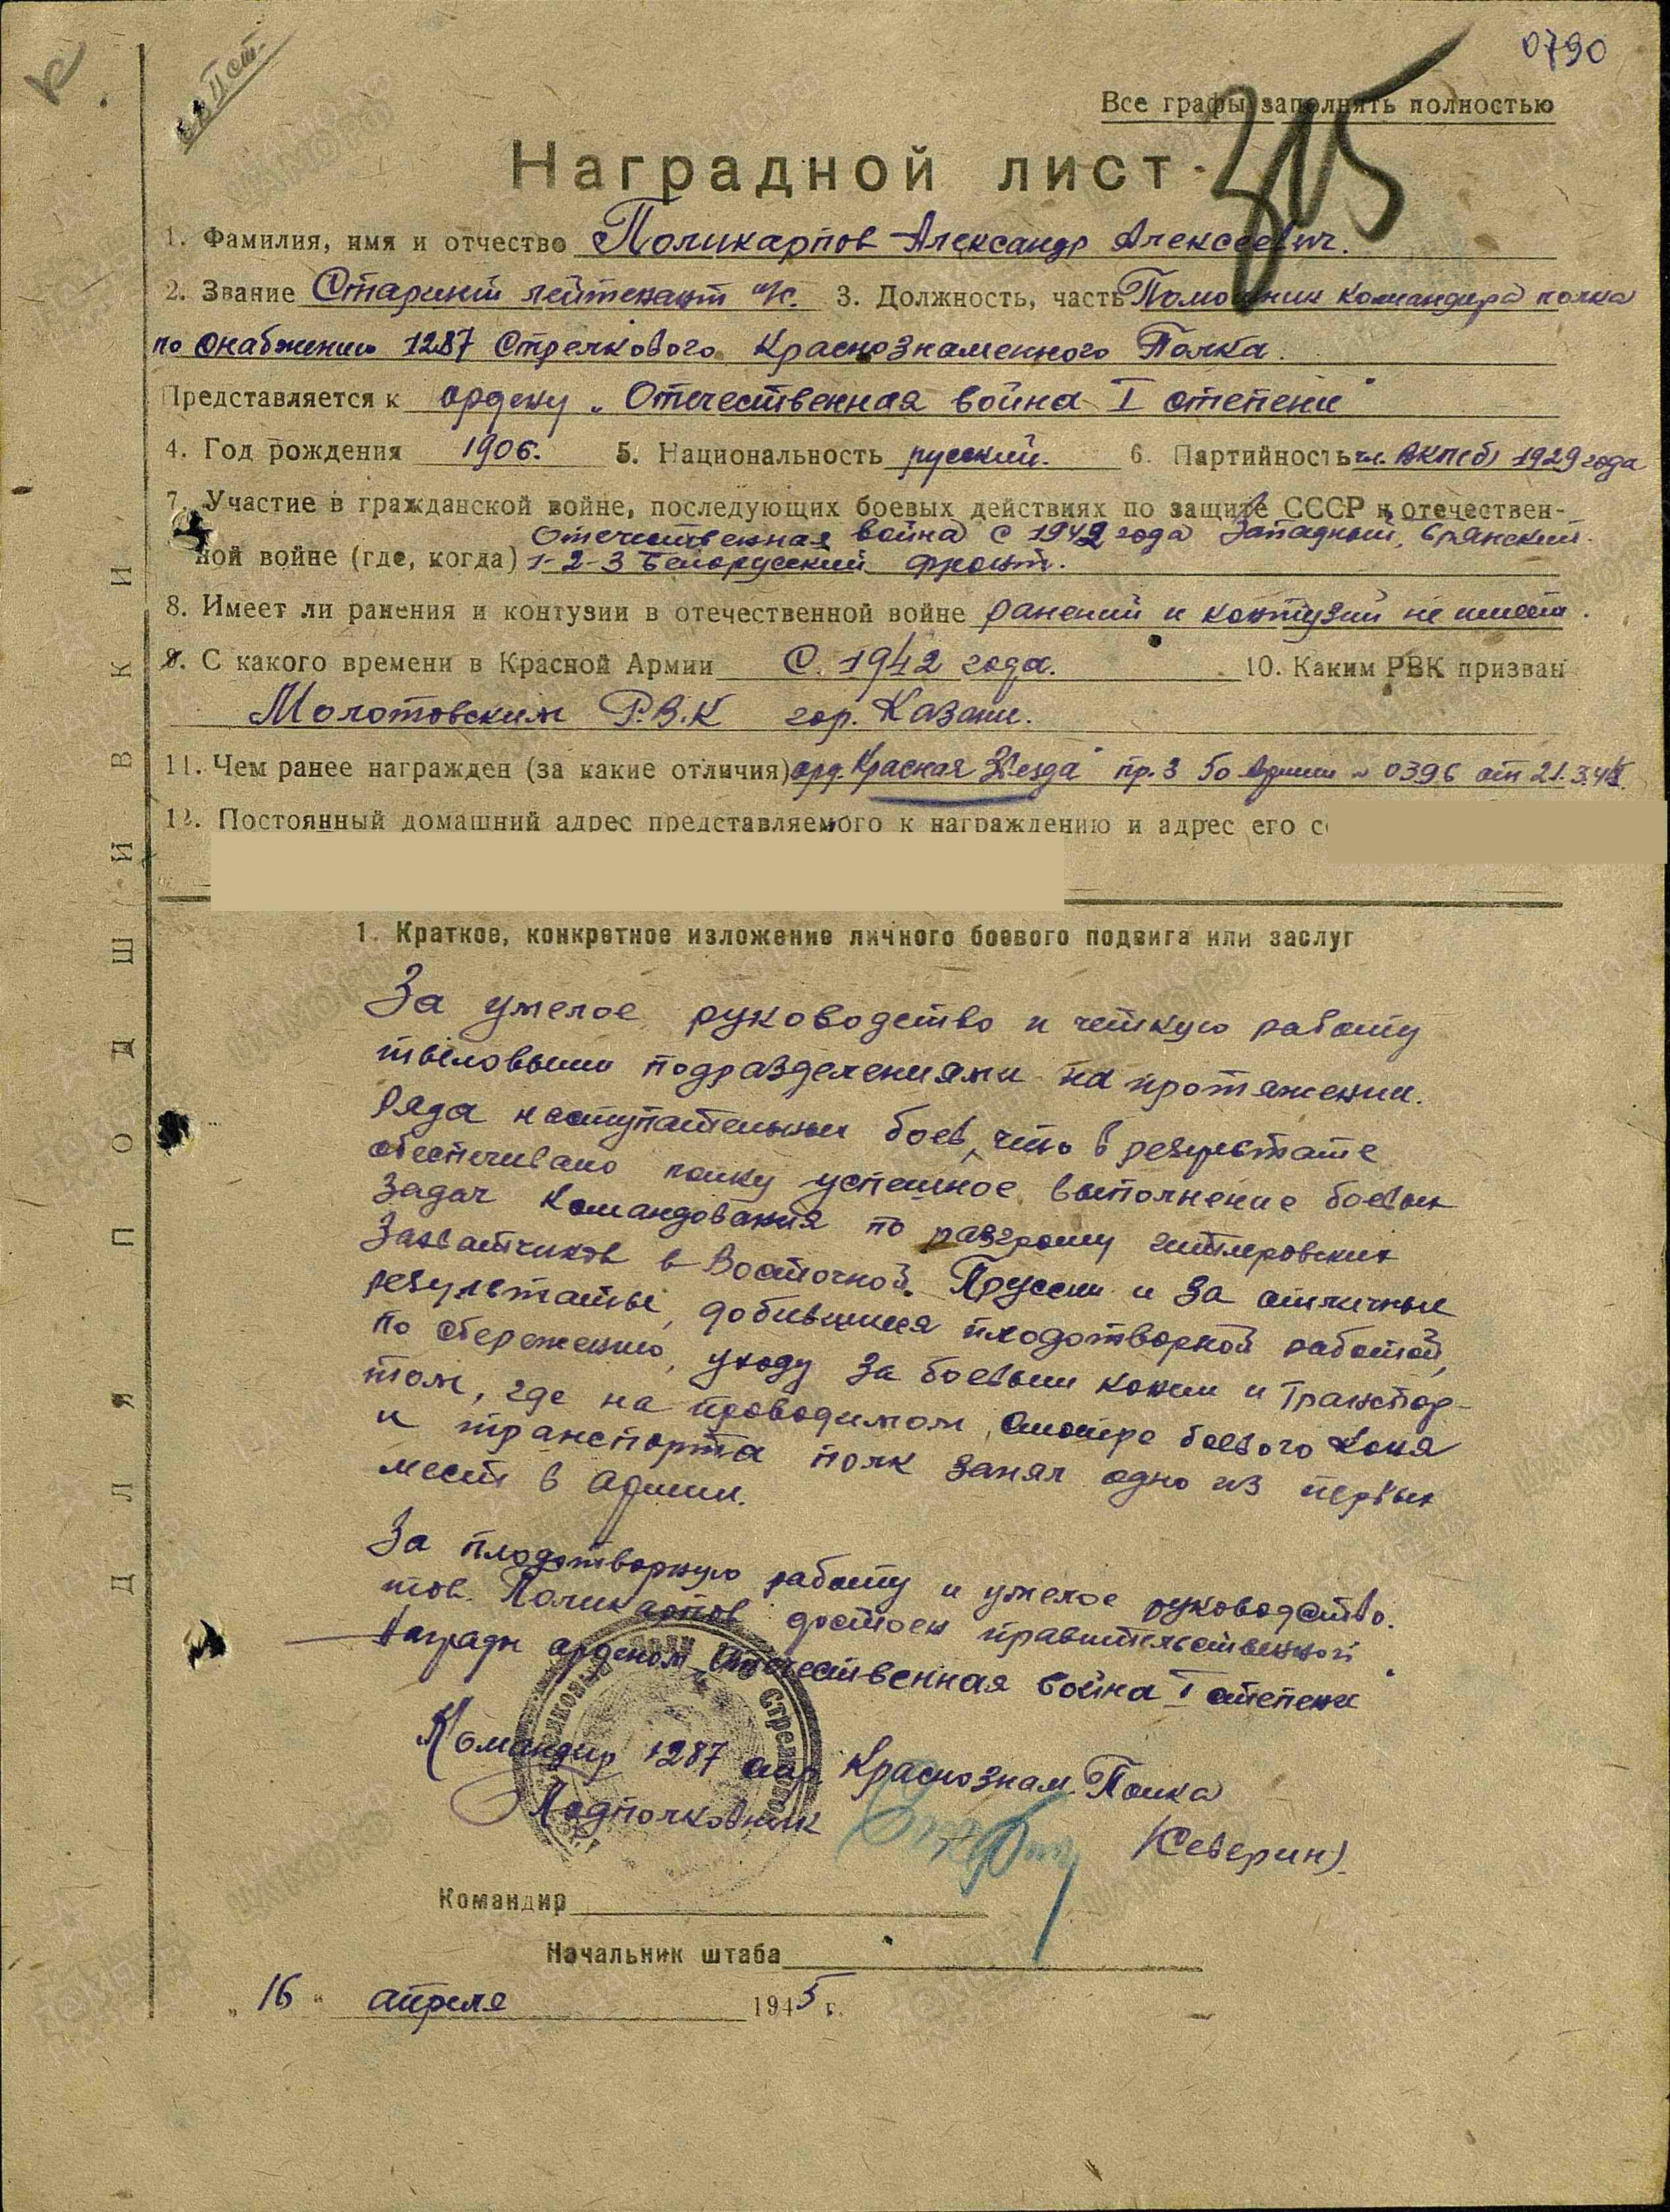 0790
Все графы заполнять полностью
Наградной лист
1. Фамилия, имя и отчество Поликарпов Александр Алексеевич.
2. Звание Старший лейтенант и/с. 3. Должность, часть Помощник командира полка
по снабжению 1287 Стрелкового Краснознаменного Полка.
Представляется к ордену „Отечественная война I степени"
4. Год рождения 1906. 5. Национальность русский. 6. Партийность чл. ВКП(б) 1929 года
7. Участие в гражданской войне, последующих боевых действиях по защите СССР и отечествен-
Отечественная война с 1942 года Западный, Брянский.
ной войне (где, когда) 1-2-3 Белорусский фронт.
8. Имеет ли ранения и контузии в отечественной войне ранений и контузий не имеет.
9. С какого времени в Красной Армии С. 1942 года. 10. Каким РВК призван
Молотовским Р.В.К гор. Казани.
11. Чем ранее награжден (за какие отличия) орд. „Красная Звезда" пр. 3 й армии № 0396 от 21.3.45.
12. Постоянный домашний адрес представляемого к награждению и адрес его
1. Краткое, конкретное изложение личного боевого подвига или заслуг
За умелое руководство и четкую работу
тыловыми подразделениями на протяжении.
ряда наступательных боев, что в результате
обеспечивало полку успешное выполнение боевых
задач командования по разгрому гитлеровских
захватчиков в Восточной Пруссии и за отличные
результаты, добившиися плодотворной работой,
по сбережению, уходу за боевым конем и транспор-
том, где на проводимом смотре боевого коня
и транспорта полк занял одно из первых
мест в армии.
За плодотворную работу и умелое руководство.
тов. Поликарпов достоен правительственной
награды орденом „Отечественная война I степени"
Командир 1287 стр. Краснознам. Полка
Подполковник (Северин).
Командир
Начальник штаба
„16" апреля 1945 г.
ДЛЯ ПОДШИВКИ